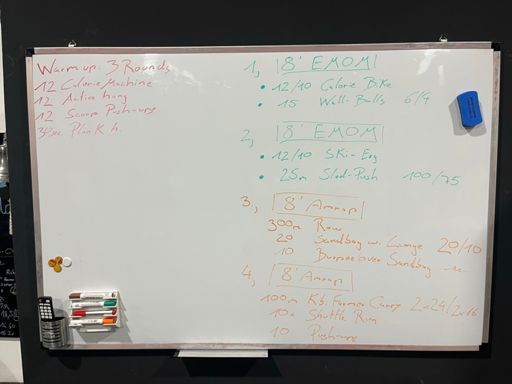 Warm up: 3 Rounds
12 Calorie Machine
12 Active hang
12 Scap Push-ups
30sec Plank h.
1, 8' EMOM
• 12/10 Calorie Bike
• 15 Wall-Balls 6/4
2, 8' EMOM
• 12/10 Ski-Erg
• 25m Sled-Push 100/75
3, 8' Amrap
300m Row
20 Sandbag w. Lunge 20/10
10 Burpee over Sandbag
4, 8' Amrap
100m Kb. Farmer Carry 2x24/2x16
10x Shuttle Run
10 Push-ups